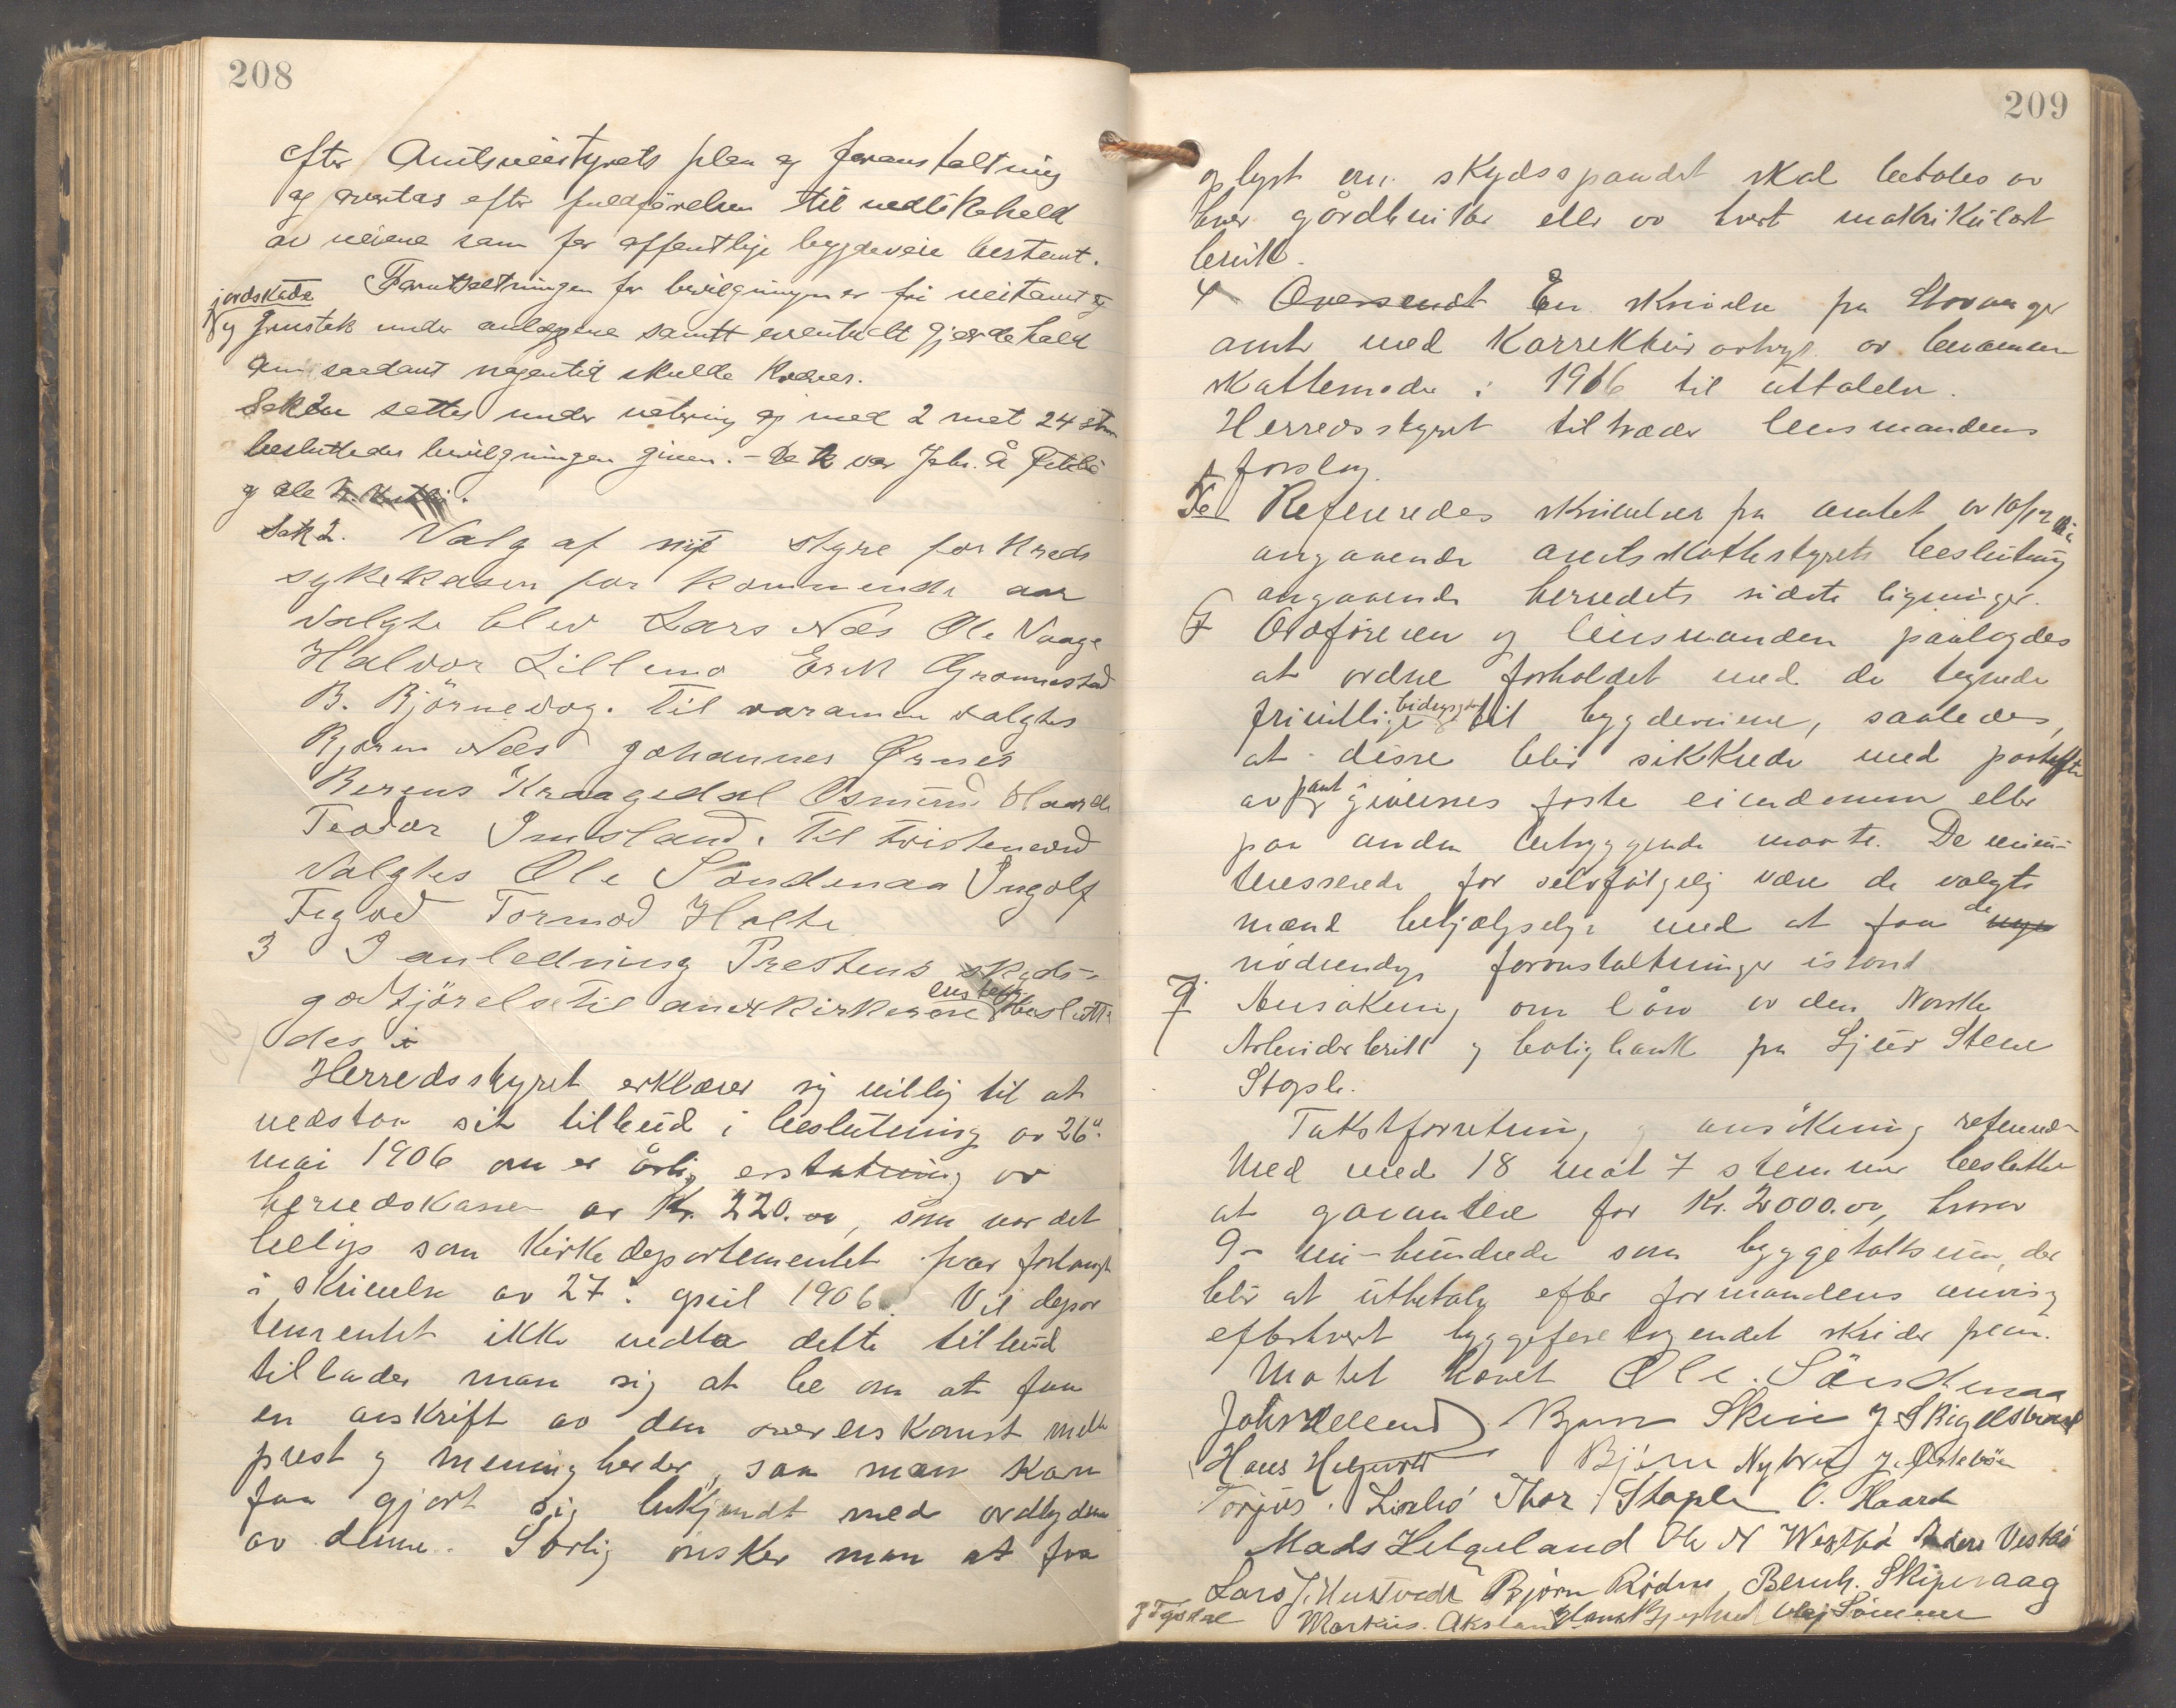 208
efter Amtsveistyrets plan og foranstaltning
og overtas efter fuldførelsen til vedlikehold
av veiene som for offentlige bygdeveie bestemt.
jordskade Forutsetningen for bevilgningen er fri veitomt og
og grustak under anlæggene samt eventuelt gjerdehold
om saadant nogentid skulde kræves.
Saken settes under votering og med 2 mot 24 stm
besluttedes bevilgningen given. – De 2 var Joh. Å
og Ole
Sak 2. Valg af nyt styre for Kreds
sykekasen for kommende aar
Valgte blev Lars Næs Ole Vaage
Halvor Lillemo Erik Grønnestad
B. Björnevog. Til varamen valgtes
Bjørn Næs Johannes Ørnes
Berens Kraagedal Osmund Haarde
Teodor Imsland. Til tvistenævd
Valgtes Ole Söndenaa Ingolf
Tormod Holte
3 I anledning Prestens skyds-
godtjörelse til anekskirkerne beslutte
des
Herredsstyret erklærer sig villig til at
vedstaa sit tilbud i beslutning av 26de
mai 1906 om en årlig erstatning av
herredskassen av Kr. 220.00, som var det
beløp som Kirkedepartementet har forlangt
i skrivelse av 27. april 1906. Vil depar
tementet ikke vedta dette tilbud
tillader man sig at be om at faa
en avskrift av den overenskomst mellem
prest og menigheder, saa man kan
faa gjort sig bekjendt med ordlyden
av denne. Særlig ønsker man at faa
209
oplyst om skydsspandet skal betales av
hver gårdbruker eller av hvert matrikulert
bruk.
4 Oversendt En skrivelse fra Stavanger
amt med Korrekturavtryk av
skattemøde i 1916 til uttalelse.
Herredsstyret tiltræder lensmandens
forslag.
Refereredes skrivelser fra amtet av 10/12
angaaende amtsskattestyrets beslutning
angaaende herredets sidste ligninger.
Ordføreren og lensmanden paalagdes
at ordne forholdet med de tegnede
frivillige bidrag til bygdeveiene, saaledes,
at disse blir sikkrede med
av pant i givernes faste eiendommer eller
paa anden betryggende maate. De veiin-
teresserede får selvfølgelig være de valgte
mænd behjælpelige med at faa de nye
nødvendige foranstaltninger istand.
9 Ansøkning om lån av den Norske
Arbeiderbruk og boligbank fra Sjur Stene
Stople.
Takstforretning og ansøkning refereredes
Med med 18 mot 7 stemmer besluttes
at garantere for Kr. 2000.00, hvorav
9 – ni – hundrede som byggetaksum, der
blir at utbetale efter formandens anvisning
efterhvert byggeforetagendet skrider frem.
Møtet hævet Ole. Söndenaa
Joh Velland Bjørn Skeie J. Skigelstrand
Hans Bjørn Nybru J. Østebøe
Torjus. Thor. Stople O. Haarde
Mads Helgeland Ole N Westbø Anders Vestbø
Lars J. Hustvedt Bjørn Rødne Bernh. Skipevaag
Markus. Aksland